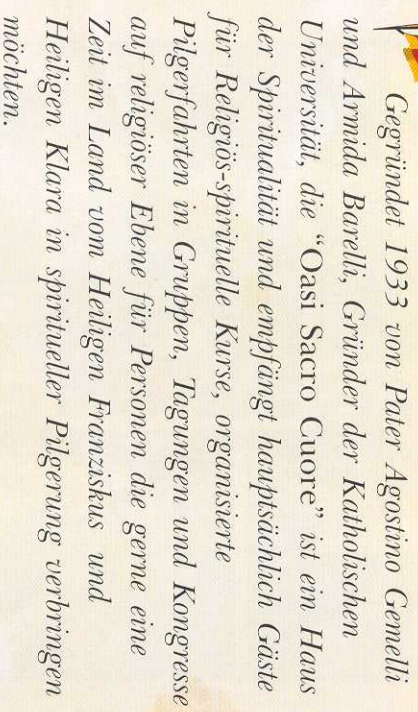 Gegründet 1933 von Pater Agostino Gemelli
und Armida Barelli, Gründer der Katholischen
Universität, die “Oasi Sacro Cuore” ist ein Haus
der Spiritualität und empfängt hauptsächlich Gäste
für Religiös-spirituelle Kurse, organisierte
Pilgerfahrten in Gruppen, Tagungen und Kongresse
auf religiöser Ebene für Personen die gerne eine
Zeit im Land vom Heiligen Franziskus und
Heiligen Klara in spiritueller Pilgerung verbringen
möchten.